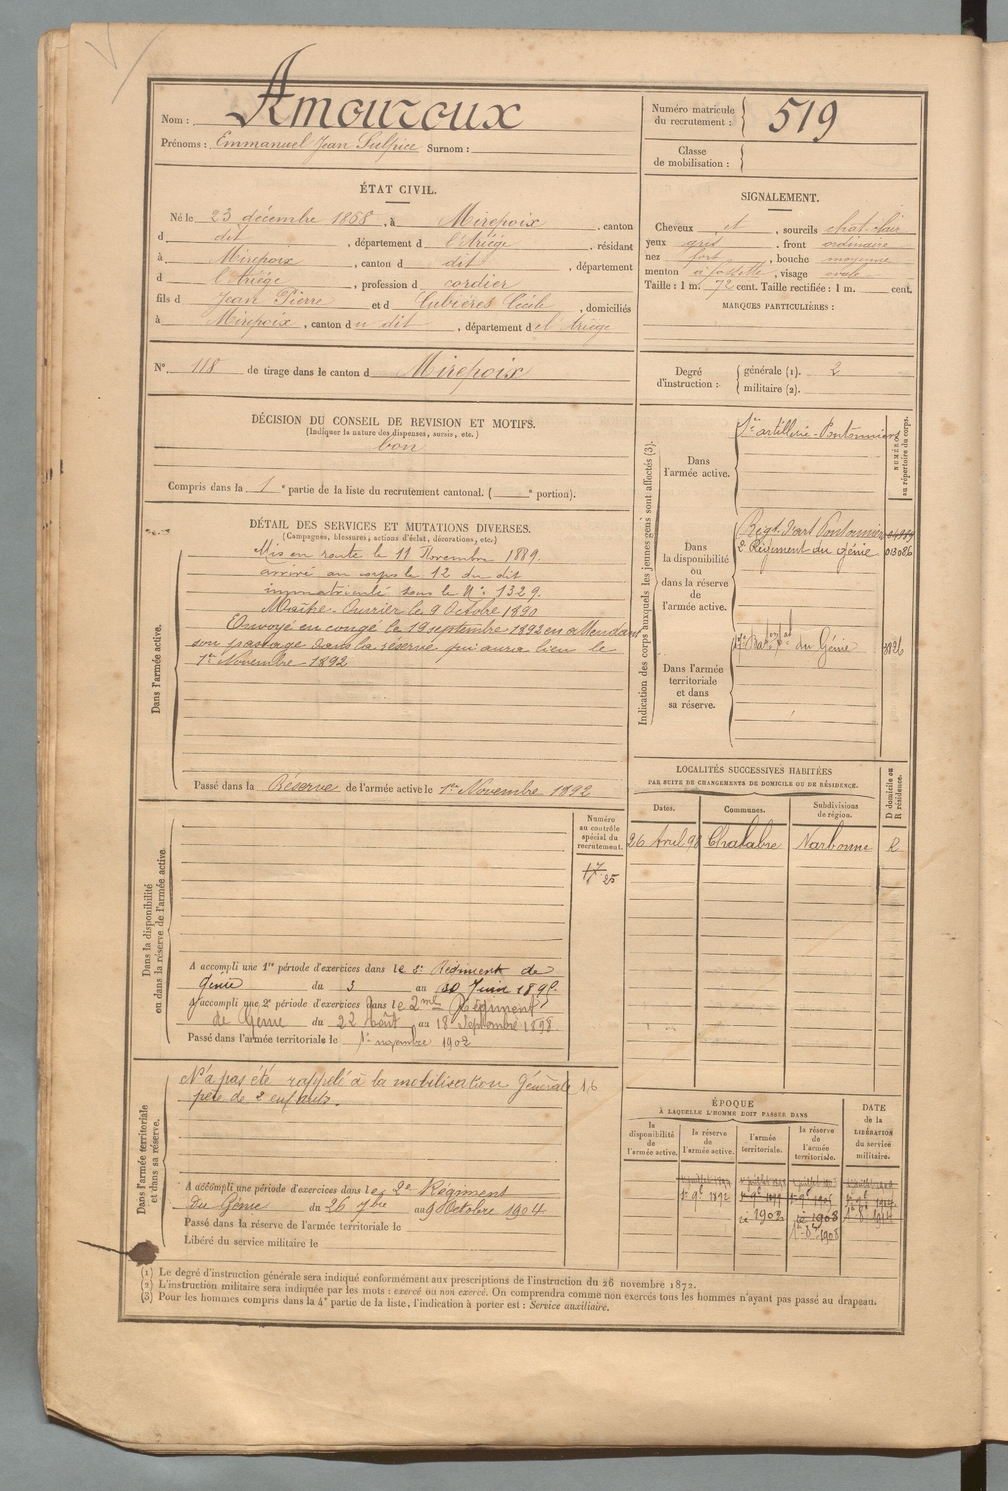 Nom : Amouroux
Prénoms : Emmanuel Jean Sulpice Surnom :
Numéro matricule du recrutement : 519
Classe de mobilisation :
ÉTAT CIVIL.
Né le 23 décembre 1868, à Mirepoix, canton
d dit, département d l'Ariége, résidant
à Mirepoix, canton d dit, département
d l'Ariége, profession d cordier
fils d Jean Pierre et d Cubières Cécile, domiciliés
à Mirepoix, canton du dit, département de l'Ariége
SIGNALEMENT.
Cheveux et, sourcils chat-clair
yeux gris, front ordinaire
nez fort, bouche moyenne
menton à fossette, visage ovale
Taille : 1 m. 72 cent. Taille rectifiée : 1 m. cent.
MARQUES PARTICULIÈRES :
N° 118 de tirage dans le canton d Mirepoix
Degré d'instruction : générale (1). 2
militaire (2).
DÉCISION DU CONSEIL DE REVISION ET MOTIFS.
(Indiquer la nature des dispenses, sursis, etc.)
bon
Compris dans la 1e partie de la liste du recrutement cantonal. ( e portion).
DÉTAIL DES SERVICES ET MUTATIONS DIVERSES.
(Campagnes, blessures, actions d'éclat, décorations, etc.)
Dans l'armée active.
Mis en route le 11 Novembre 1889.
arrivé au corps le 12 du dit
immatriculé sous le N°: 1329.
Maître-Ouvrier le 9 Octobre 1890
Envoyé en congé le 19 septembre 1892 en attendant
son passage dans la réserve qui aura lieu le
1er Novembre 1892
Passé dans la Réserve de l'armée active le 1er Novembre 1892
Indication des corps auxquels les jeunes gens sont affectés (3).
NUMÉRO au répertoire du corps.
Dans l'armée active.
1er artillerie-Pontonniers
Dans la disponibilité ou dans la réserve de l'armée active.
Régt. d'art Pontonniers
2e Régiment du génie 013086
Dans l'armée territoriale et dans sa réserve.
du Génie
LOCALITÉS SUCCESSIVES HABITÉES
PAR SUITE DE CHANGEMENTS DE DOMICILE OU DE RÉSIDENCE.
Dates. Communes. Subdivisions de région. D domicile ou R résidence.
26 Avril 98 Chalabre Narbonne R
Dans la disponibilité ou dans la réserve de l'armée active.
Numéro au contrôle spécial du recrutement.
17
25
A accompli une 1re période d'exercices dans le 2e Régiment de
Génie du 3 au 30 Juin 1895.
A accompli une 2e période d'exercices dans le 2me Régiment
de Génie du 22 Août au 18 Septembre 1898
Passé dans l'armée territoriale le 1er novembre 1902
Dans l'armée territoriale et dans sa réserve.
N'a pas été rappelé à la mobilisation Générale
père de 2 enfants.
16
A accompli une période d'exercices dans le 2e Régiment
Du Génie du 26 7bre au 9 Octobre 1904
Passé dans la réserve de l'armée territoriale le
Libéré du service militaire le
ÉPOQUE
À LAQUELLE L'HOMME DOIT PASSER DANS
la disponibilité de l'armée active.
la réserve de l'armée active.
l'armée territoriale.
la réserve de l'armée territoriale.
DATE de la LIBÉRATION du service militaire.
1er 9bre 1892
1902
1908
(1) Le degré d'instruction générale sera indiqué conformément aux prescriptions de l'instruction du 26 novembre 1872.
(2) L'instruction militaire sera indiquée par les mots : exercé ou non exercé. On comprendra comme non exercés tous les hommes n'ayant pas passé au drapeau.
(3) Pour les hommes compris dans la 4e partie de la liste, l'indication à porter est : Service auxiliaire.